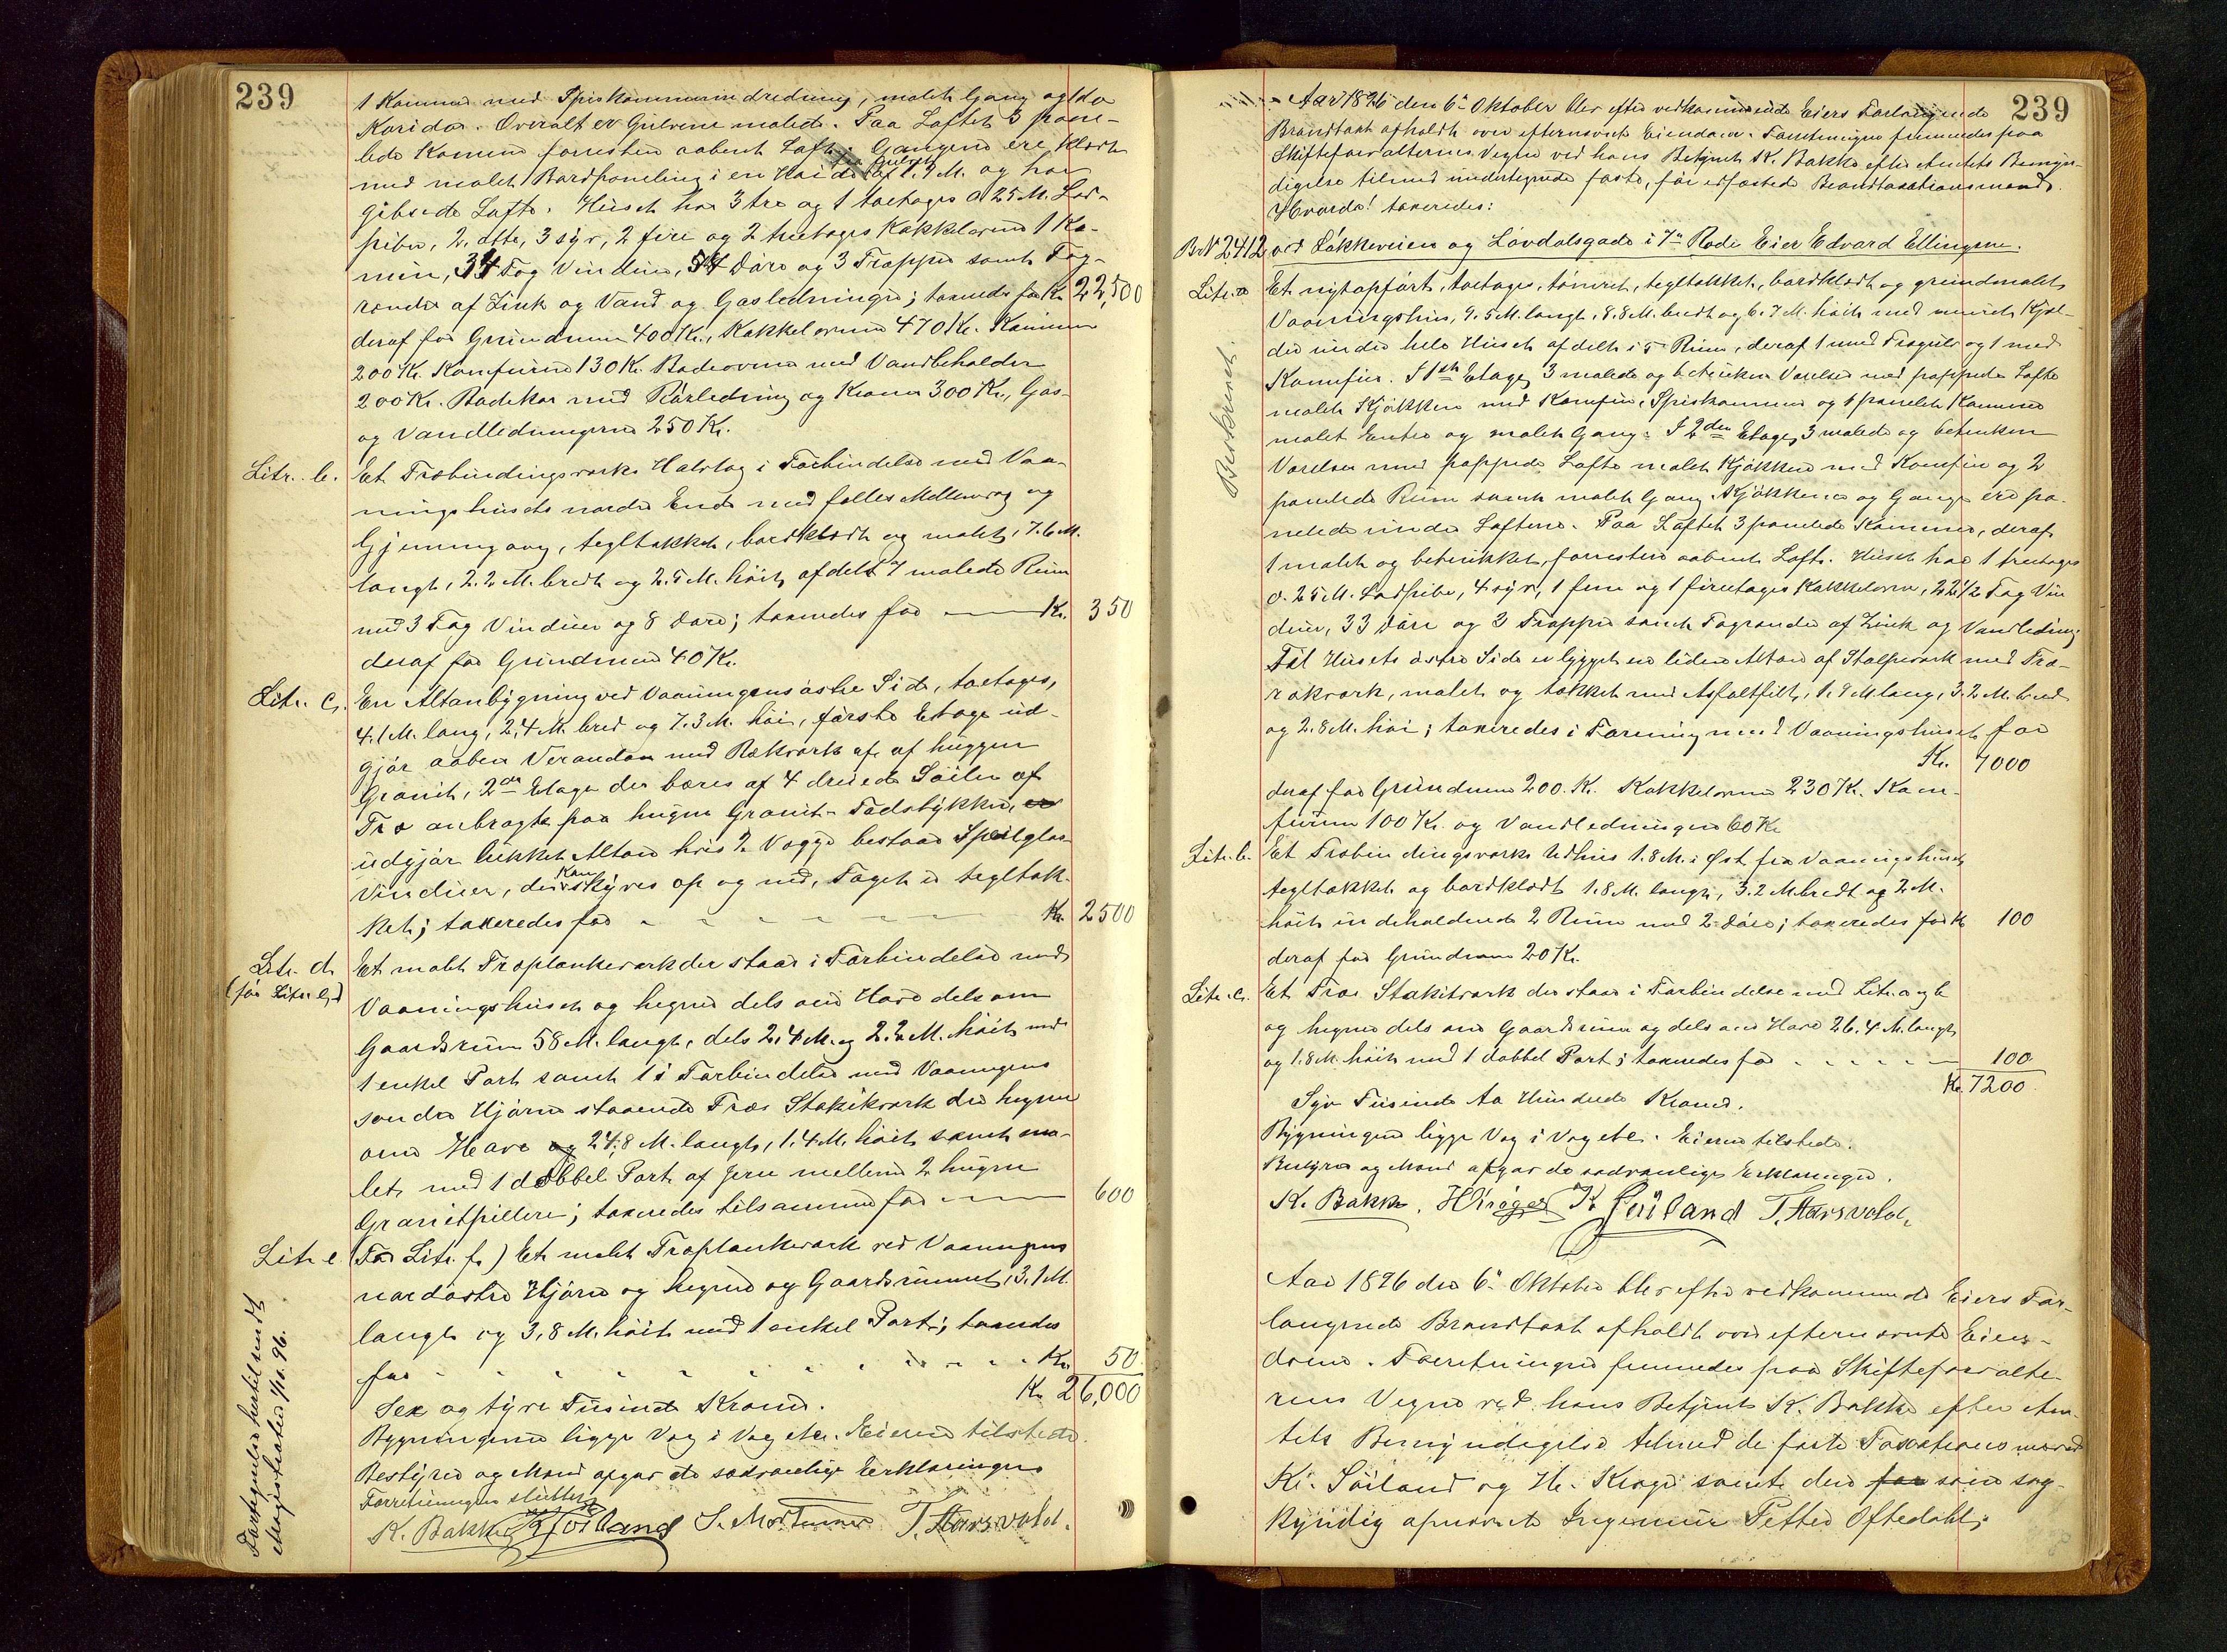 239
1 Kammer med Spiskammerindredning, malet Gang og do
Koridor. Overalt er Gulvene malede. Paa Loftet 3 pane-
lede Kammer forresten aabent Loft. Gangene ere klædt
fra Gulvet
med malet Bordpaneling i en Høide af 1.9 M. og har
gibsede Lofte. Huset har 3 tre og 1 toetages à 25 M. Lod-
piber, 2 otte, 3 syv, 2 fire og 2 treetages Kakkelovne 1 Ka-
min, 34 Fag Vinduer, 54 Døre og 3 Trapper samt Tag-
render af Zink og Vand og Gasledninger; taxeredes for Kr. 22,500
deraf for Grundmur 400 Kr., Kakkelovne 470 Kr. Kaminen
200 Kr. Komfurene 130 Kr. Badeovne med Vandbeholder
200 Kr. Badekar med Rørledning og Kraner 300 Kr., Gas-
og Vandledningerne 250 Kr.
Litr. b. Et Træbindingsværks Halvtag i Forbindelse med Vaa-
ningshusets nordre Ende med fælles Mellemvæg og
Gjennemgang, tegltækket, bordklædt og malet, 7.6 M.
langt, 2.2 M. bredt og 2.5 M. høit, afdelt 7 malede Rum
med 3 Fag Vinduer og 8 Døre; taxeredes for Kr. 350
deraf for Grundmur 40 Kr.
Litr. c. En Altanbygning ved Vaaningens østre Side, toetages,
4.1 M. lang, 2.4 M. bred og 7.3 M. høi, første Etage ud-
gjør aaben Verandan med Rækværk af af huggen
Granit, 2den Etage der bæres af 4 dreiede Søiler af
Træ anbragte paa hugne Granit-Fodstykker,
udgjør lukket Altan hvis 2 Vægge bestaar Speilglas
Kan
Vinduer, der skyves op og ned, Taget er tegltæk-
ket; taxeredes for Kr. 2500
Litr. d. Et malet Træplankeværk der staar i Forbindelse med
(før Litr. e.)
Vaaningshuset og hegner dels om Have dels om
Gaardsrum 58 M. langt, dels 2.4 M. og 2.2 M. høit med
1 enkel Port samt 1 i Forbindelse med Vaaningens
søndre Hjørne staaende Træ Stakitværk der hegner
om Have og 24,8 M. langt, 1.4 M. høit samt ma-
let, med 1 dobbel Port af Jern mellem 2 hugne
Granitpillere; taxeredes tilsammen for 600
Litr. e (Før Litr. f.) Et malet Træplankeværk ved Vaaningens
nordøstre Hjørne og hegner og Gaardsrummet, 3.1 M.
langt og 3,8 M. høit med 1 enkel Port; taxeredes
for Kr. 50
Kr. 26,000
Sex og tyve Tusinde Kroner.
Bygningerne ligge Væg i Væg etc. Eieren tilstede.
Bestyrer og Mænd afgav de sædvanlige Erklæringer
Forretningen sluttet
K. Bakke K Søiland S. Mortensen T. Aarsvold.
Fortegnelse hertil sendt
Magistraten 1/10. 96.
239
Aar 1896 den 6te Oktober blev efter vedkommende Eiers Forlangende
Brandtaxt afholdt over efternævnte Eiendom. Forretningen fremmedes paa
Skifteforvalterens Vegne ved hans Betjent K. Bakke efter Amtets Bemyn-
digelse tilmed undertegnede faste, før edfæstede Brandtaxationsmænd.
Hvorda! taxeredes:
Br. No 2412 ved Løkkeveien og Løvdalsgade i 7de Rode Eier Edvard Ellingsen.
Litr. a Et nytopført, toetages, tømret, tegltækket, bordklædt og grundmalet
Vaaningshus, 9.5 M. langt, 8.8 M. bredt og 6.7 M. høit med muret Kjæl-
der under hele Huset afdelt i 5 Rum, deraf 1 med Trægulv og 1 med
Komfur. I 1ste Etage, 3 malede og betrukne Værelser med pappede Lofte
malet Kjøkken med Komfur, Spiskammer og 1 panelet Kammer
malet Entre og malet Gang. I 2den Etage, 3 malede og betrukne
Værelser med pappede Lofte malet Kjøkken med Komfur og 2
panelede Rum samt malet Gang. Kjøkkenet og Gange ere pa-
nelede under Loftene. Paa Loftet 3 panelede Kammer, deraf
1 malet og betrukket, forresten aabent Loft. Huset har 1 treetages
à 25 M. Lodpibe, 4 syv, 1 fem og 1 firetages Kakkelovn, 22 1/2 Fag Vin
duer, 33 Døre og 3 Trapper samt Tagrender af Zink og Vandledning;
Til Husets østre Side er bygget en liden Altan af Stolpeværk med Træ-
rækværk, malet og tækket med Asfaltfilt, 1.9 M lang, 3.2 M. bred
og 2.8 M. høi; taxeredes i Forening med Vaaningshuset for
Kr. 7000
deraf for Grundmur 200 Kr. Kakkelovne 230 Kr. Kom-
furene 100 Kr. og Vandledningen 60 Kr
Litr. b. Et Træbindingsværks Udhus 1.8 M. i Øst fra Vaaningshuset
tegltækket og bordklædt 1.8 M. langt, 3.2 M. bredt og 2 M.
høit indeholdende 2 Rum med 2 Døre; taxeredes for Kr 100
deraf for Grundmur 20 Kr.
Litr. c. Et Træ Stakitværk der staar i Forbindelse med Litr. a og b
og hegner dels om Gaardsrum og dels om Have 26.4 M. langt
og 1.8 M. høit med 1 dobbel Port; taxeredes for 100
Kr. 7200
Syv Tusinde to Hundrede Kroner.
Bygningerne ligge Væg i Væg etc. Eieren tilstede.
Bestyrer og Mænd afgav de sædvanlige Erklæringer.
K. Bakke. H Krøger K Søiland T. Aarsvold.
Aar 1896 den 6te Oktober blev efter vedkommende Eiers For-
langende Brandtaxt afholdt over efternævnte Eien-
dom. Forretningen fremmedes paa Skifteforvalte-
rens Vegne ved hans Betjent K. Bakke efter Am-
tets Bemyndigelse tilmed de faste Taxationsmænd
K. Søiland og H. Krøger samt den for som sag-
kyndig opnævnte Ingeniør Petter Oftedahl;